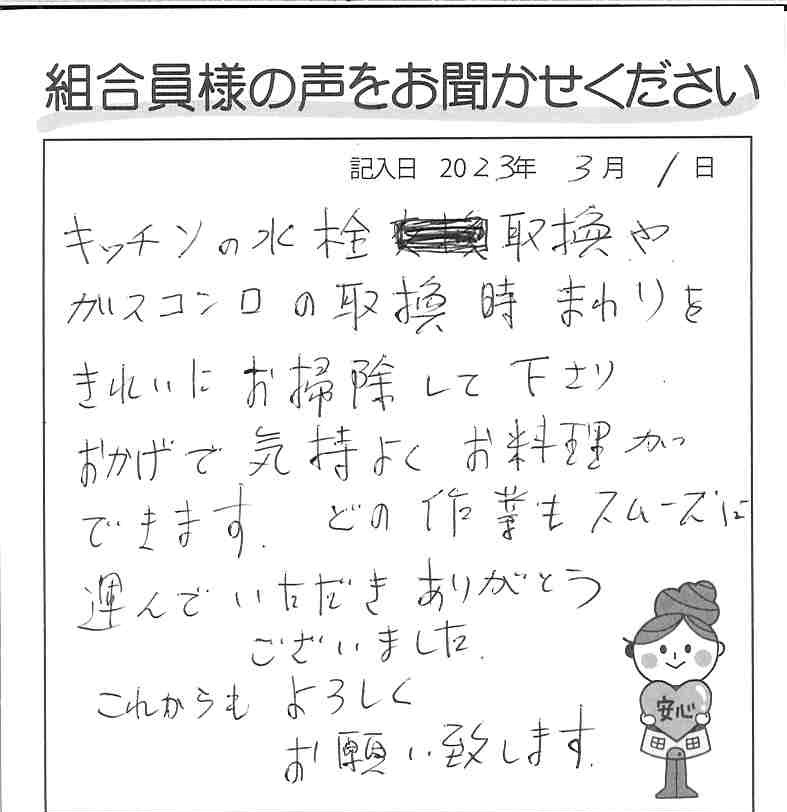 組合員様の声をお聞かせください
記入日 2023年 3月 1日
キッチンの水栓 取換や
ガスコンロの取換時 まわりを
きれいにお掃除して下さり
おかげで気持よく お料理が
できます. どの作業もスムーズに
運んでいただき ありがとう
ございました.
これからも よろしく
お願い致します.
安心